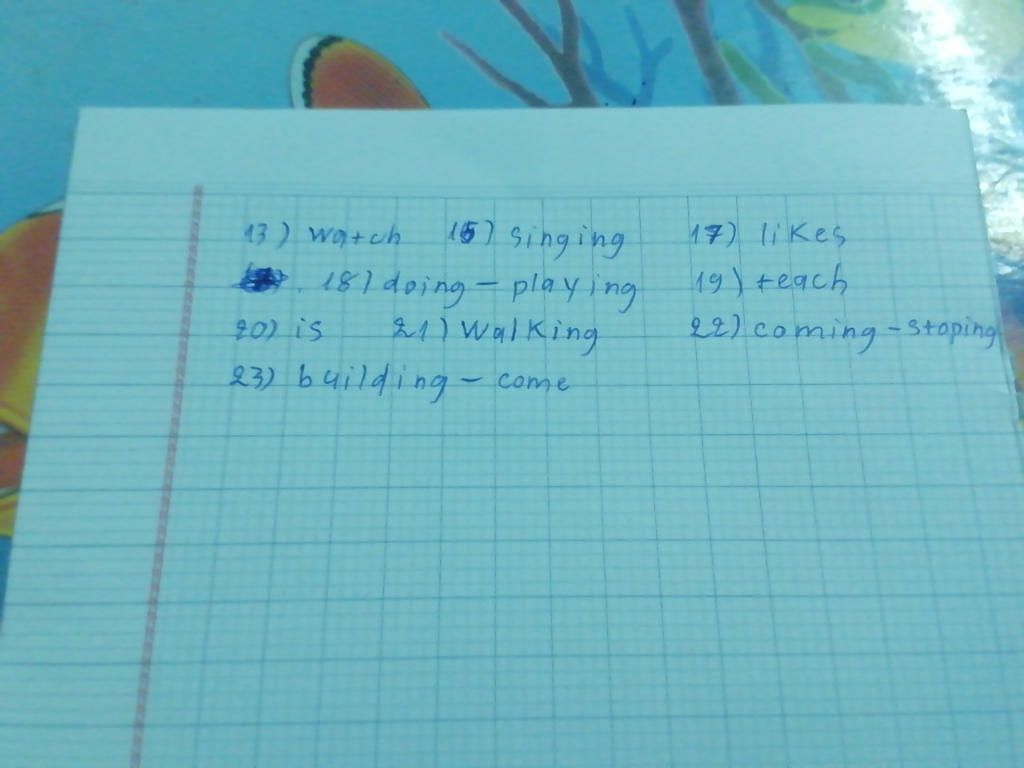 13) watch 15) singing 17) likes
. 18) doing - playing 19) teach
20) is 21) walking 22) coming - stoping
23) building - come